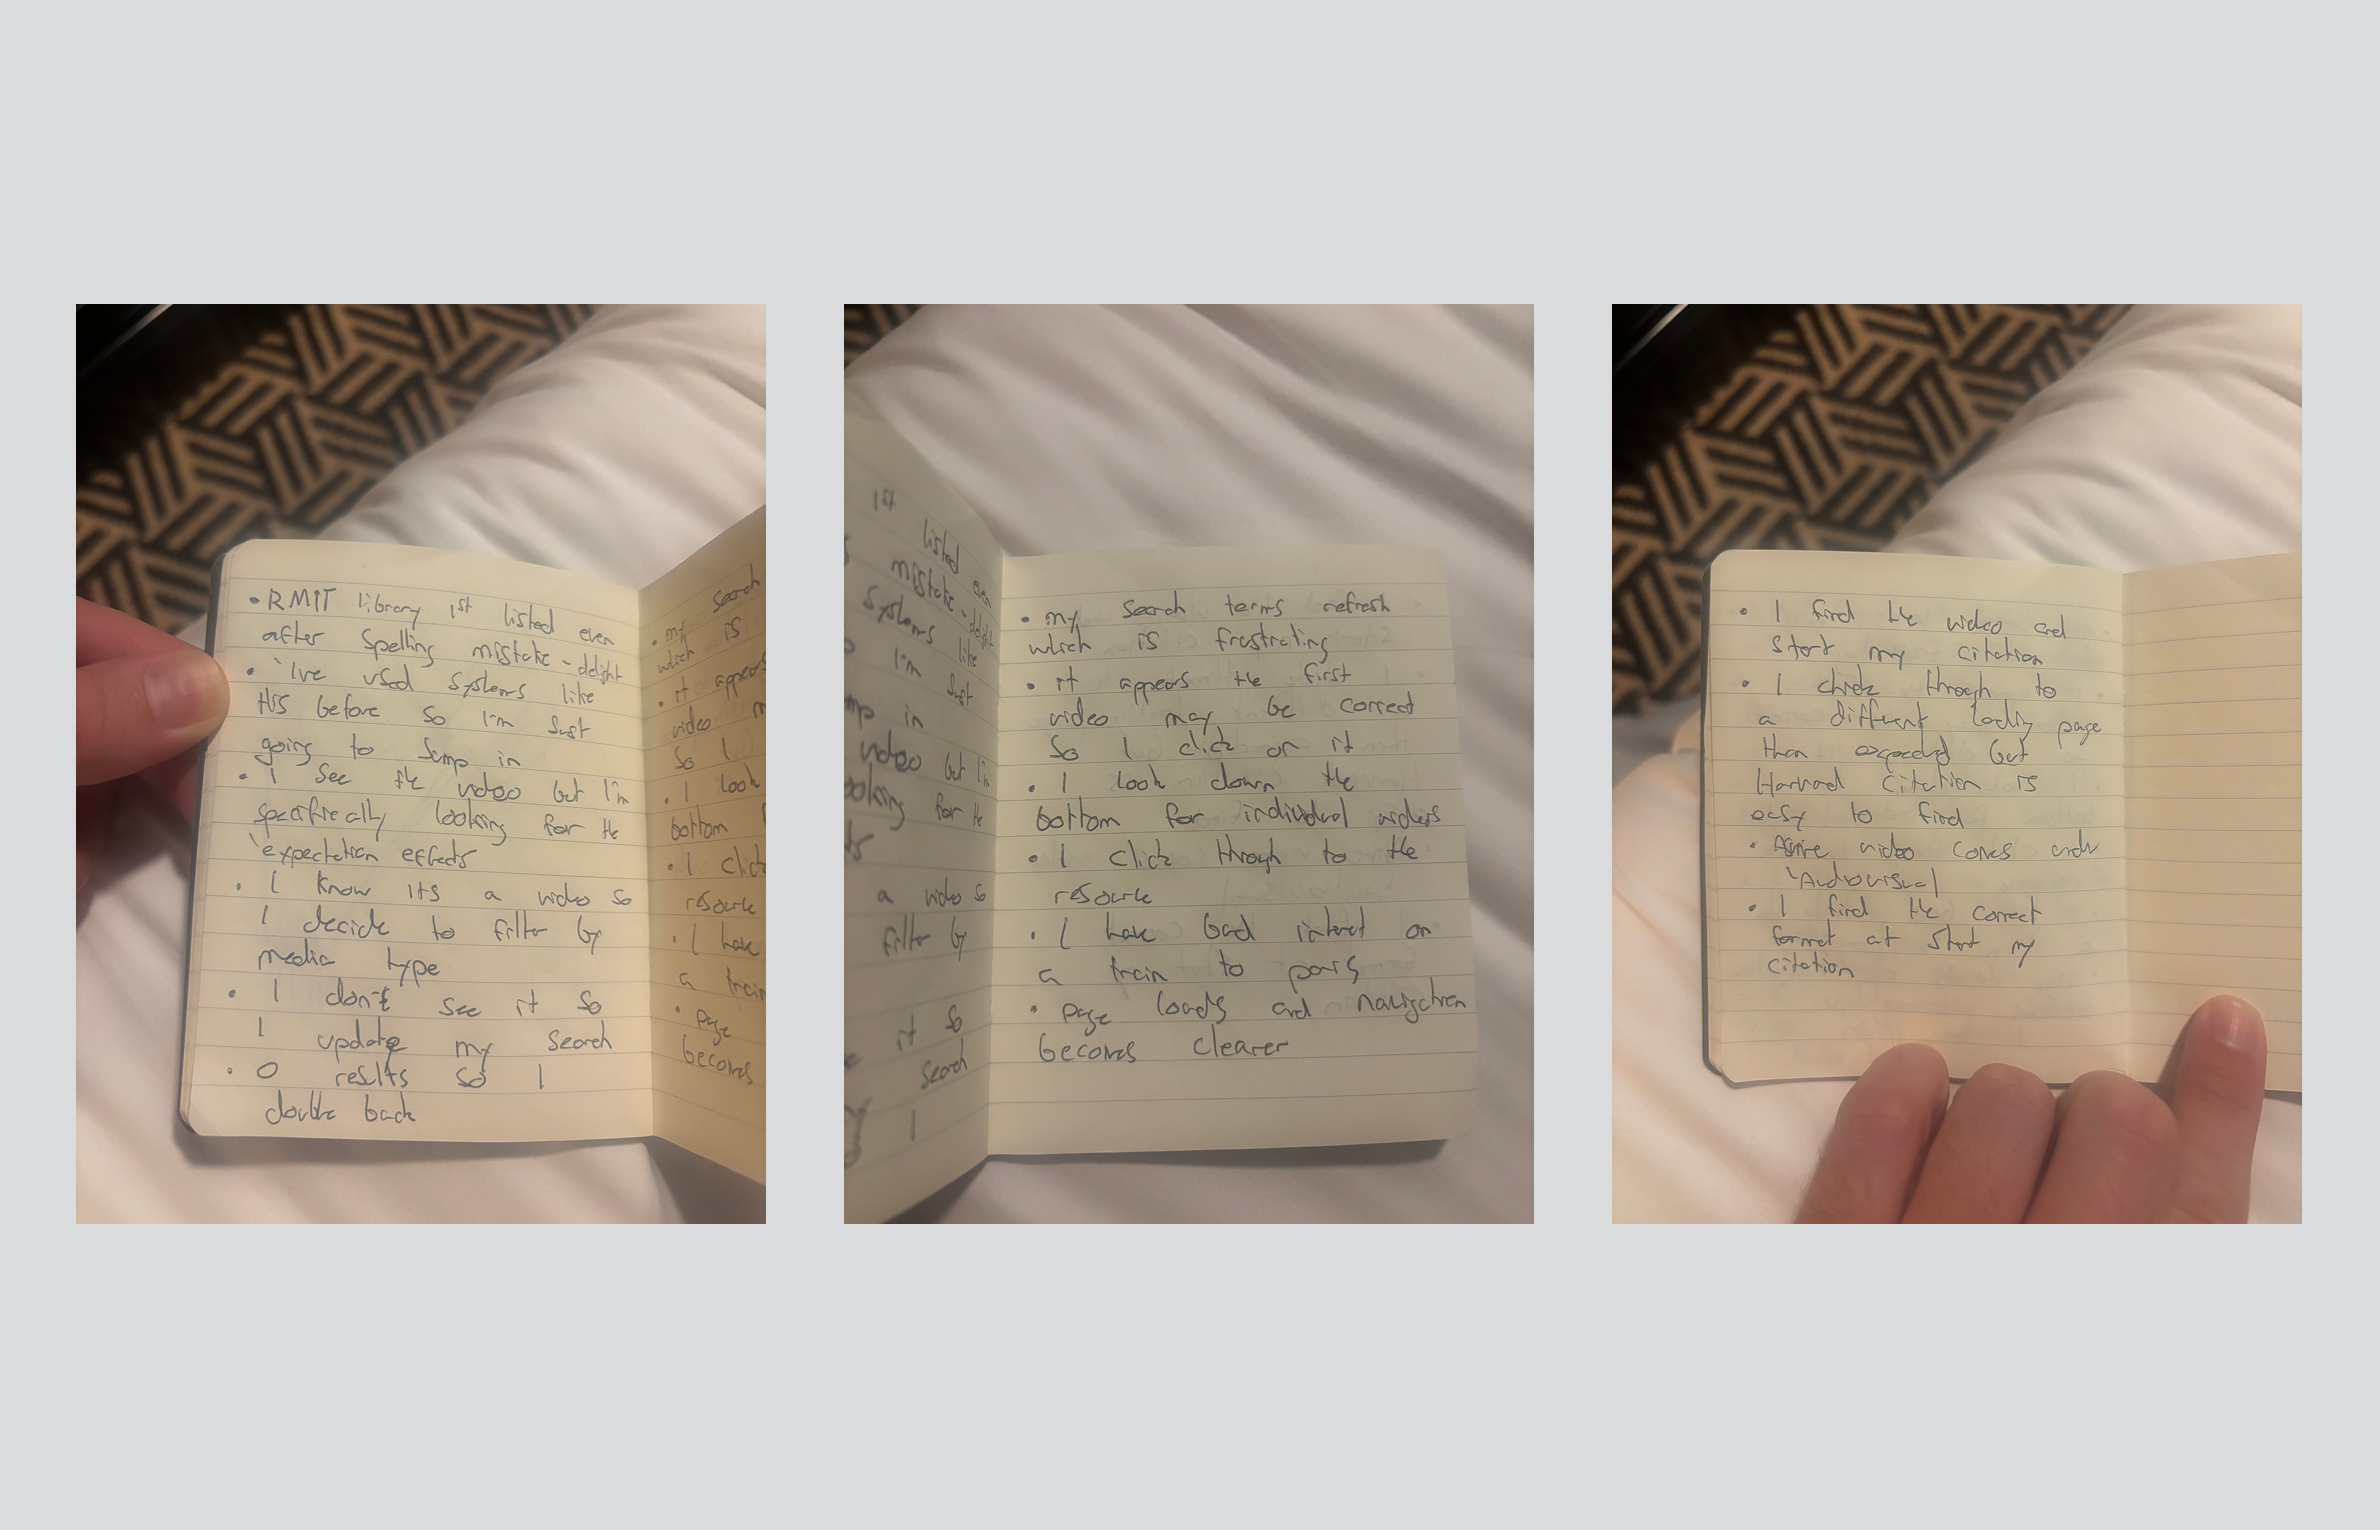 • RMIT library 1st listed even
after spelling mistake - delight
• 'I've used systems like
this before so I'm just
going to jump in
• I see the video but I'm
specifically looking for the
'expectation effects
• I know its a video so
I decide to filter by
media type
• I don't see it so
I update my search
• 0 results so I
double back
• my search terms refresh
which is frustrating
• it appears the first
video may be correct
so I click on it
• I look down the
bottom for individual videos
• I click through to the
resource
• I have bad internet on
a train to paris
• page loads and navigation
becomes clearer
• I find the video and
start my citation
• I click through to
a different looking page
than expected but
Harvard citation is
easy to find
• video comes under
'Audiovisual
• I find the correct
format at start my
citation